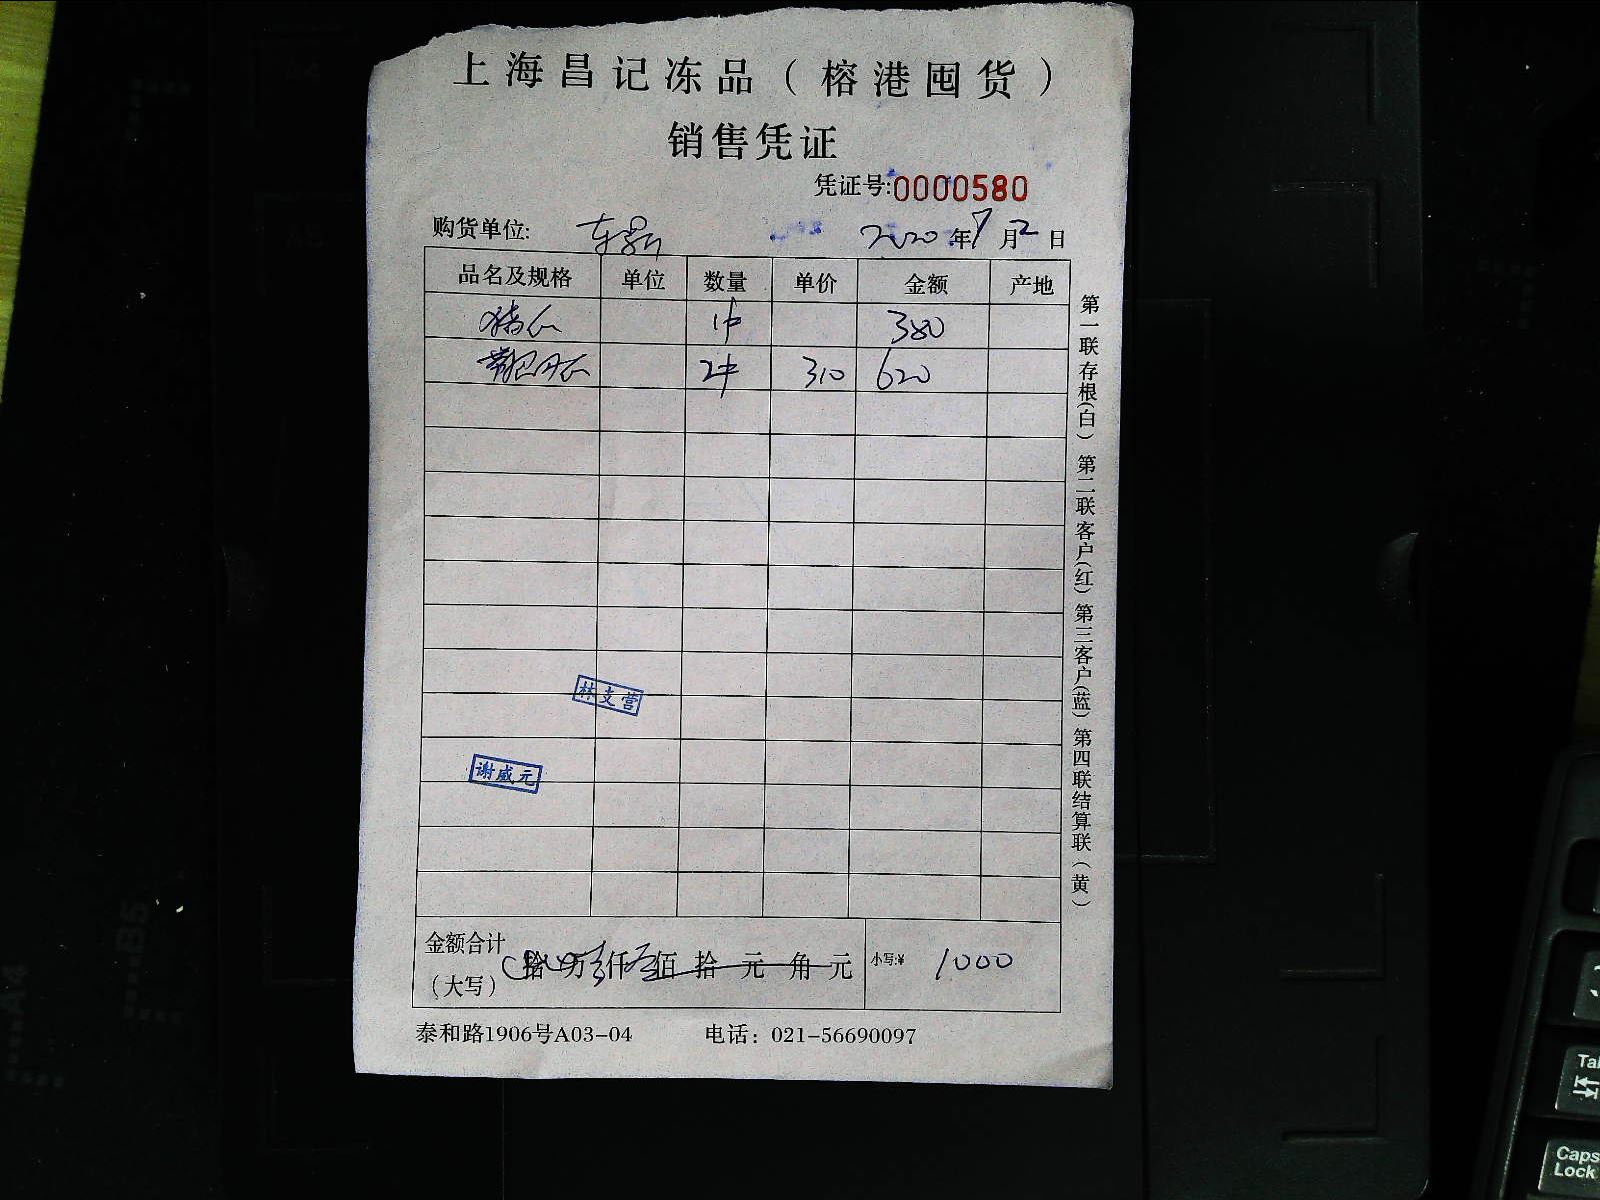 上海昌记冻品（榕港囤货）
销售凭证
凭证号:0000580
购货单位: 2020年7月2日
品名及规格 单位 数量 单价 金额 产地
1件 380
2件 310 620
林支营
谢威元
金额合计（大写） 拾 万 仟 佰 拾 元 角 元 小写:¥ 1000
泰和路1906号A03-04 电话：021-56690097
第一联存根(白) 第二联客户(红) 第三客户(蓝) 第四联结算联(黄)
A4
B5
Tab
Caps Lock